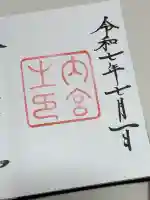 令和七年七月一日
内宮
之印